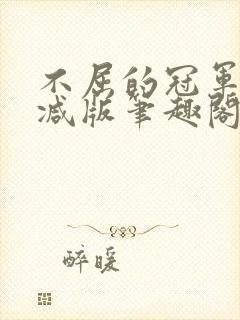 不屈的冠军
减版笔趣阁
醉暖